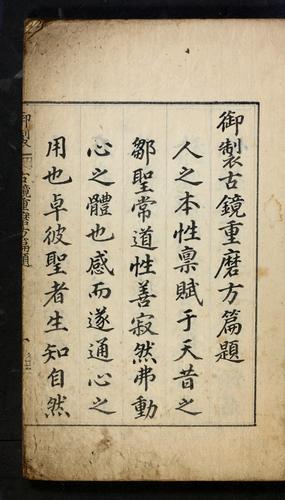 御製古鏡重磨方篇題
人之本性禀賦于天昔之
鄒聖常道性善寂然弗動
心之體也感而遂通心之
用也卓彼聖者生知自然
古鏡重磨方篇題